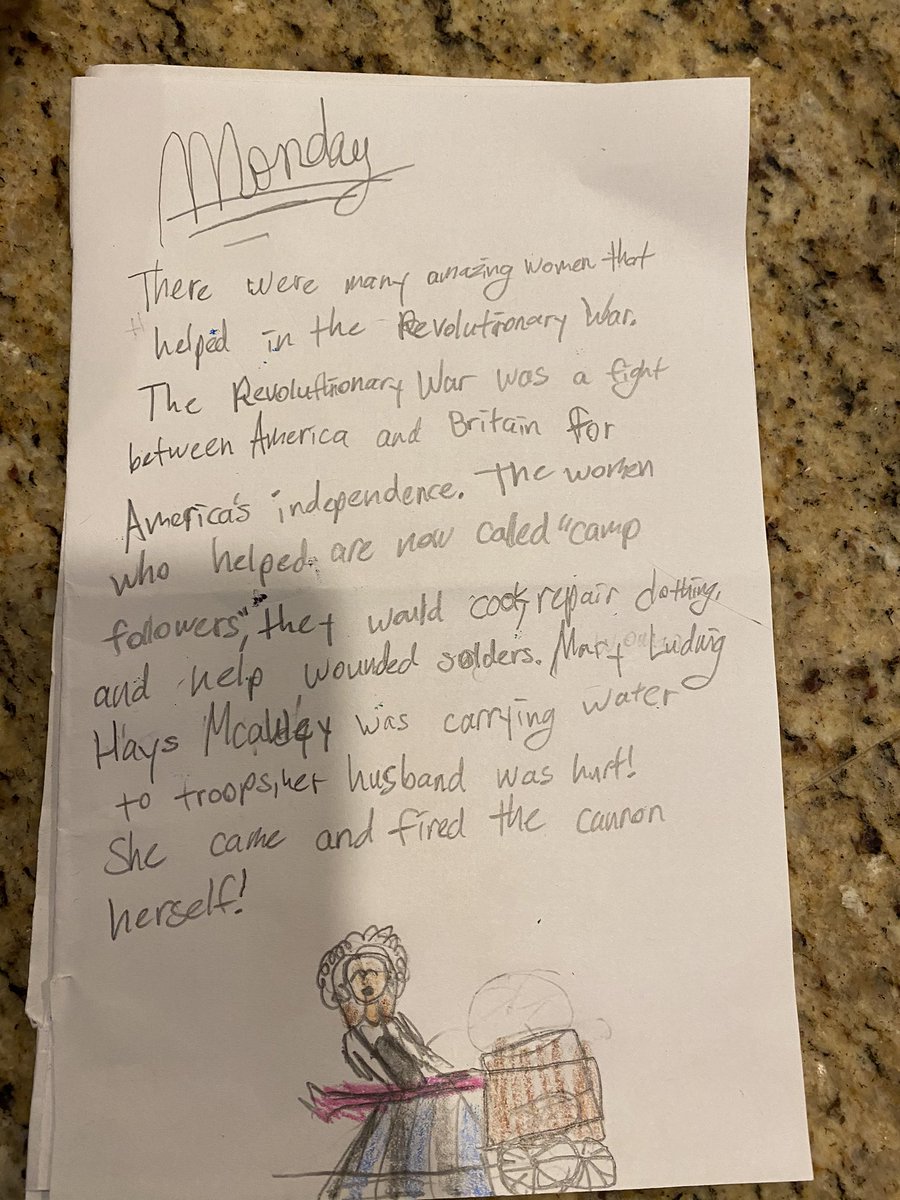 Monday
There were many amazing women that
helped in the Revolutionary War.
The Revolutionary War was a fight
between America and Britain for
America's independence. The women
who helped are now called "camp
followers", they would cook, repair clothing,
and help wounded solders. Mary Ludwig
Hays Mcauley was carrying water
to troops, her husband was hurt!
She came and fired the cannon
herself!